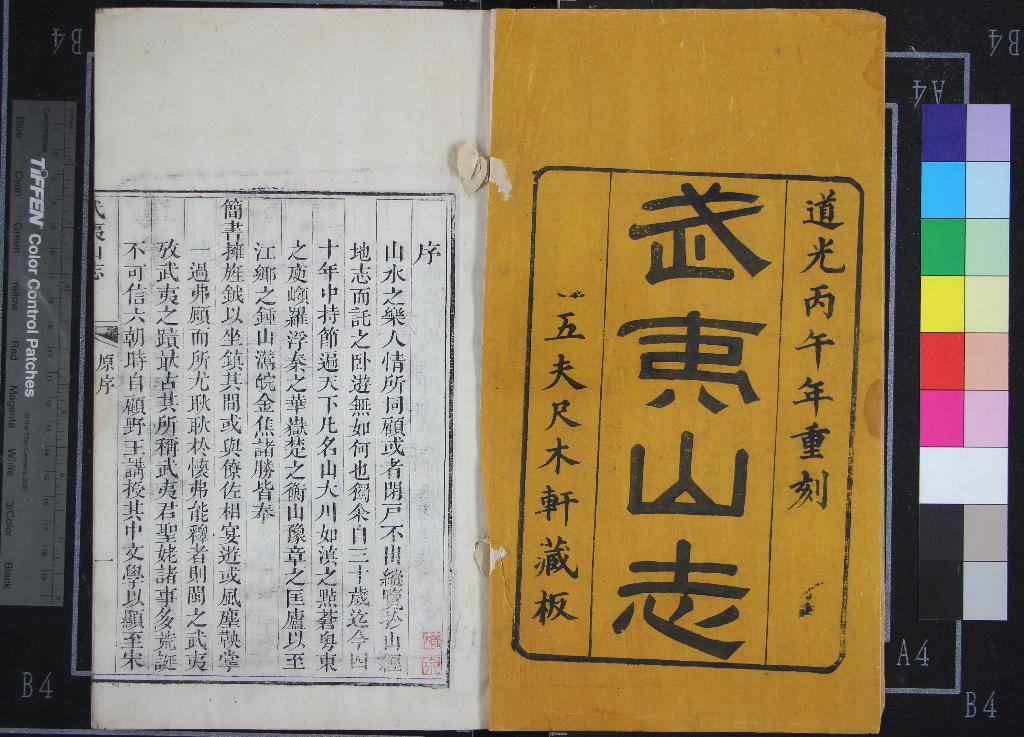 道光丙午年重刻
武夷山志
五夫尺木軒藏板
序
山水之樂人情所同顧或者閉戶不出縱覽於山經
地志而託之卧遊無如何也獨余自三十歲迄今四
十年中持節遍天下凡名山大川如滇之點蒼粵東
之庾嶺羅浮秦之華嶽楚之衡山豫章之匡廬以至
江鄉之鍾山灊皖金焦諸勝皆奉
簡書擁旌鉞以坐鎮其間或與僚佐相宴遊或風塵鞅掌
一過弗顧而所尤耿耿於懷弗能釋者則閩之武夷
攷武夷之蹟最古其所稱武夷君聖姥諸事多荒誕
不可信六朝時自顧野王講授其中文學以顯至宋
武夷山志
原序
一
B4
B4
A4
A4
B4
B4
TIFFEN Color Control Patches
Blue
Cyan
Green
Yellow
Red
Magenta
White
3/Color
Black